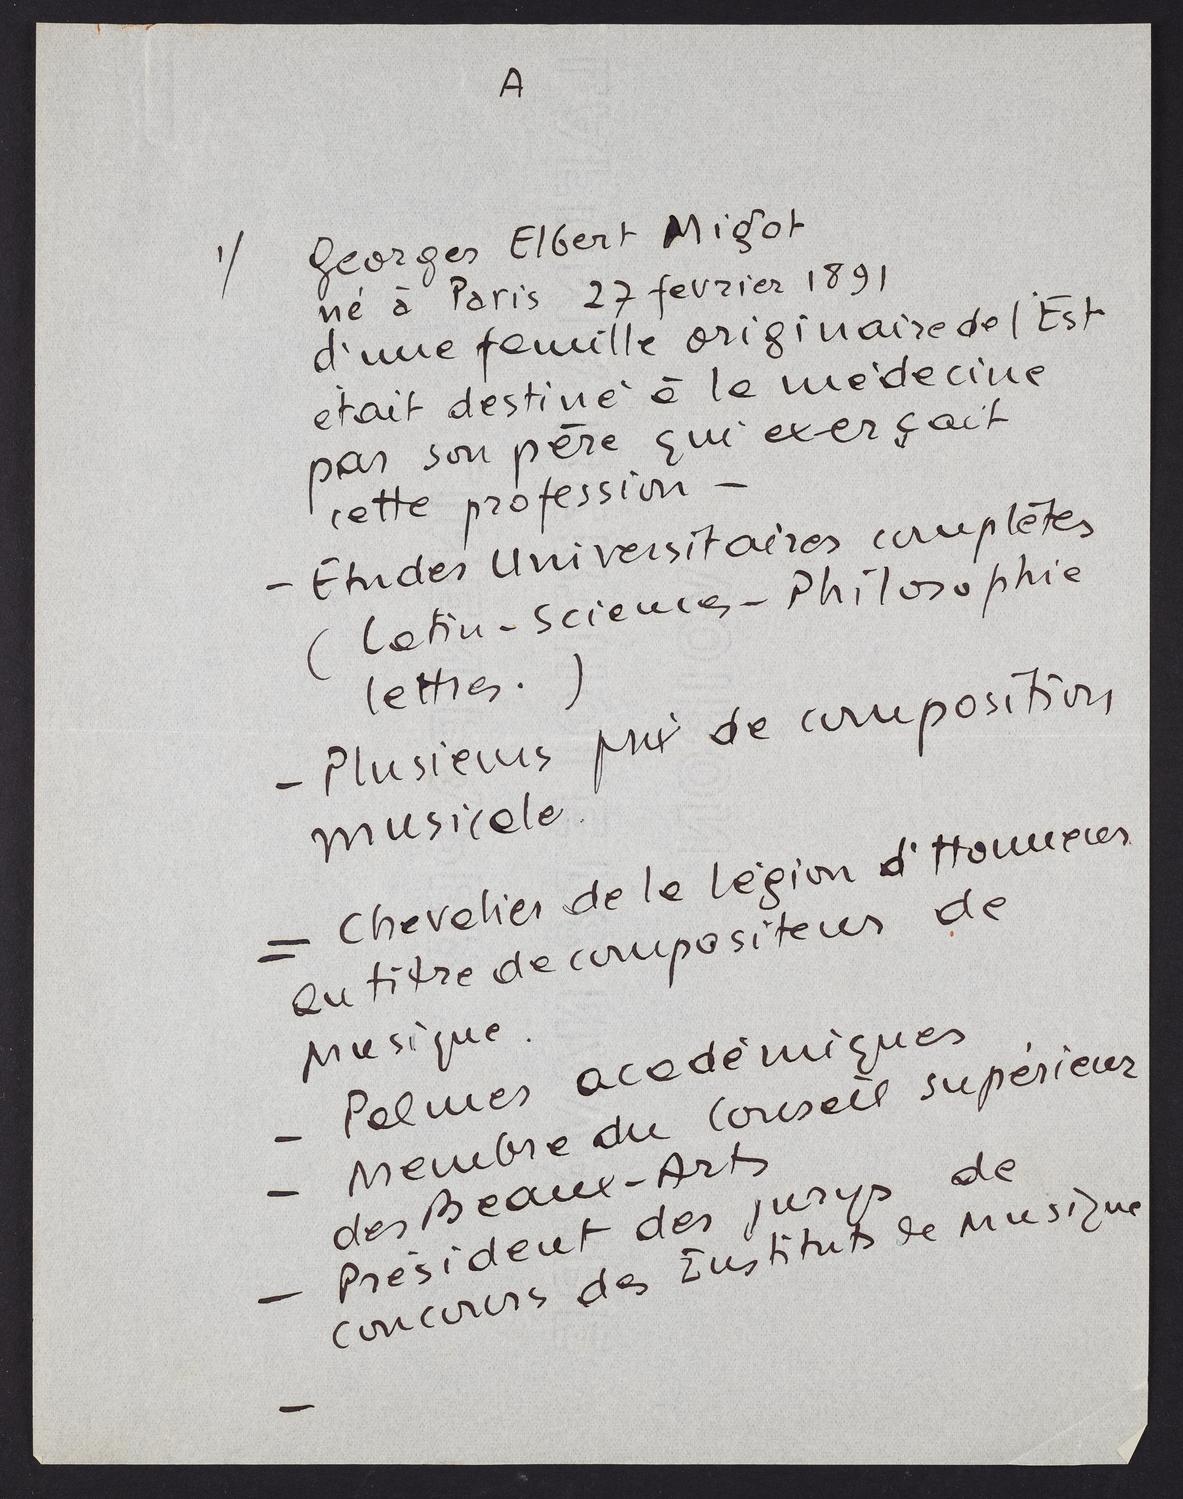 A
1/ Georges Elbert Migot
né à Paris 27 fevrier 1891
d'une famille originaire de l'Est
était destiné à la médecine
par son père qui exerçait
cette profession -
- Etudes Universitaires complètes
( Latin - Sciences - Philosophie
lettres. )
- Plusieurs prix de composition
musicale.
= Chevalier de la légion d'Honneur
au titre de compositeur de
Musique.
- Palmes académiques
- Membre du Conseil supérieur
des Beaux-Arts
- Président des jurys de
concours des Instituts de Musique
-